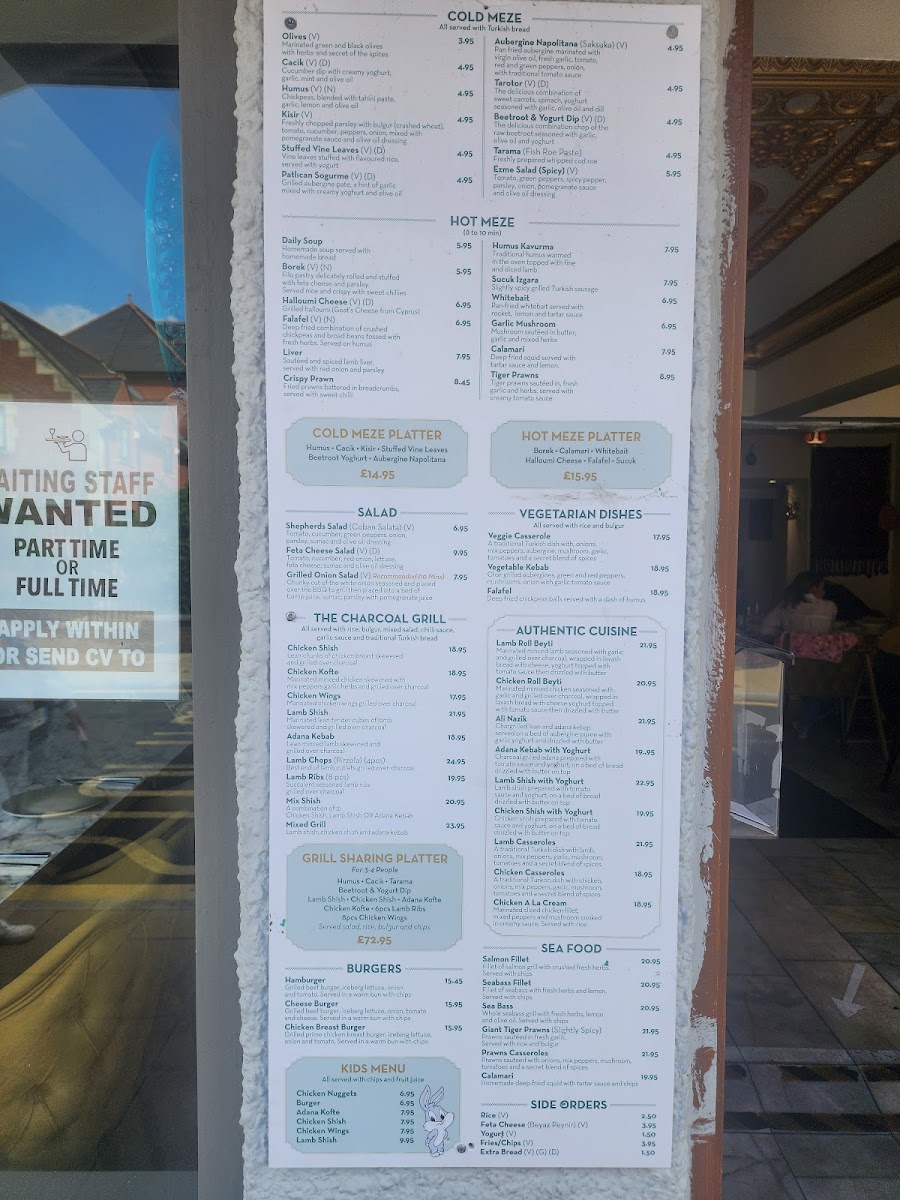 COLD MEZE
All served with Turkish bread
Olives (V) 3.95
Marinated green and black olives
with herbs and secret of the spices
Cacik (V) (D) 4.95
Cucumber dip with creamy yoghurt,
garlic, mint and olive oil
Humus (V) (N) 4.95
Chickpeas, blended with tahini paste,
garlic, lemon and olive oil
Kisir (V) 4.95
Freshly chopped parsley with bulgur (crashed wheat),
tomato, cucumber, peppers, onion, mixed with
pomegranate sauce and olive oil dressing
Stuffed Vine Leaves (V) (D) 4.95
Vine leaves stuffed with flavoured rice,
served with yogurt
Patlican Sogurme (V) (D) 4.95
Grilled aubergine pate, a hint of garlic
mixed with creamy yoghurt and olive oil
Aubergine Napolitana (Saksuka) (V) 4.95
Pan fried aubergine marinated with
virgin olive oil, fresh garlic, tomato,
red and green peppers, onion,
with traditional tomato sauce
Tarotor (V) (D) 4.95
The delicious combination of
sweet carrots, spinach, yoghurt
seasoned with garlic, olive oil and dill
Beetroot & Yogurt Dip (V) (D) 4.95
The delicious combination chop of the
raw beetroot seasoned with garlic,
olive oil and yoghurt
Tarama (Fish Roe Paste) 4.95
Freshly prepared whipped cod roe
Ezme Salad (Spicy) (V) 5.95
Tomato, green peppers, spicy pepper,
parsley, onion, pomegranate sauce
and olive oil dressing
HOT MEZE
(8 to 10 min)
Daily Soup 5.95
Homemade soup served with
homemade bread
Borek (V) (N) 5.95
Filo pastry delicately rolled and stuffed
with feta cheese and parsley.
Served nice and crispy with sweet chillies
Halloumi Cheese (V) (D) 6.95
Grilled halloumi (Goat's Cheese from Cyprus)
Falafel (V) (N) 6.95
Deep fried combination of crushed
chickpeas and broad beans tossed with
fresh herbs. Served on humus
Liver 7.95
Sautéed and spiced lamb liver,
served with red onion and parsley
Crispy Prawn 8.45
Fried prawns buttered in breadcrumbs,
served with sweet chilli
Humus Kavurma 7.95
Traditional humus warmed
in the oven topped with fine
and diced lamb
Sucuk Izgara 7.95
Slightly spicy grilled Turkish sausage
Whitebait 6.95
Pan-fried whitebait served with
rocket, lemon and tartar sauce
Garlic Mushroom 6.95
Mushroom sautéed in butter,
garlic and mixed herbs
Calamari 7.95
Deep fried squid served with
tartar sauce and lemon.
Tiger Prawns 8.95
Tiger prawns sautéed in, fresh
garlic and herbs, served with
creamy tomato sauce
COLD MEZE PLATTER
Humus • Cacik • Kisir • Stuffed Vine Leaves
Beetroot Yoghurt • Aubergine Napolitana
£14.95
HOT MEZE PLATTER
Borek • Calamari • Whitebait
Halloumi Cheese • Falafel • Sucuk
£15.95
SALAD
Shepherds Salad (Coban Salata) (V) 6.95
Tomato, cucumber, green peppers, onion,
parsley, sumac and olive oil dressing
Feta Cheese Salad (V) (D) 9.95
Tomato, cucumber, red onion, lettuce,
feta cheese, sumac and olive oil dressing
Grilled Onion Salad (V) Recommended (10 Mins) 7.95
Chunky cut of the white onion seasoned and placed
over the BBQ to grill then placed into a bed of
turnip juice, sumac, parsley with pomegranate juice
THE CHARCOAL GRILL
All served with rice, bulgur, mixed salad, chilli sauce,
garlic sauce and traditional Turkish bread
Chicken Shish 18.95
Lean chunks of chicken breast skewered
and grilled over charcoal
Chicken Kofte 18.95
Marinated minced chicken skewered with
mix peppers garlic herbs and grilled over charcoal
Chicken Wings 17.95
Marinated chicken wings grilled over charcoal
Lamb Shish 21.95
Marinated lean tender cubes of lamb
skewered and grilled over charcoal
Adana Kebab 18.95
Lean minced lamb skewered and
grilled over charcoal
Lamb Chops (Pirzola) (4pcs) 24.95
Best end of lamb cutlets grilled over charcoal
Lamb Ribs (8 pcs) 19.95
Succulent seasoned lamb ribs
grilled over charcoal
Mix Shish 20.95
A combination of 2:
Chicken Shish, Lamb Shish OR Adana Kebab
Mixed Grill 23.95
Lamb shish, chicken shish and adana kebab
GRILL SHARING PLATTER
For 3-4 People
Humus • Cacik • Tarama
Beetroot & Yogurt Dip
Lamb Shish • Chicken Shish • Adana Kofte
Chicken Kofte • 6pcs Lamb Ribs
8pcs Chicken Wings
Served salad, rice, bulgur and chips
£72.95
BURGERS
Hamburger 15.45
Grilled beef burger, iceberg lettuce, onion
and tomato. Served in a warm bun with chips
Cheese Burger 15.95
Grilled beef burger, iceberg lettuce, onion, tomato
and cheese. Served in a warm bun with chips
Chicken Breast Burger 15.95
Grilled prime chicken breast burger, iceberg lettuce,
onion and tomato. Served in a warm bun with chips
KIDS MENU
All served with chips and fruit juice
Chicken Nuggets 6.95
Burger 6.95
Adana Kofte 7.95
Chicken Shish 7.95
Chicken Wings 7.95
Lamb Shish 9.95
VEGETARIAN DISHES
All served with rice and bulgur
Veggie Casserole 17.95
A traditional Turkish dish with, onions,
mix peppers, aubergine, mushroom, garlic,
tomatoes and a secret blend of spices
Vegetable Kebab 18.95
Char grilled aubergines, green and red peppers,
mushrooms, onion with garlic tomato sauce
Falafel 18.95
Deep fried chickpeas balls served with a dash of humus
AUTHENTIC CUISINE
Lamb Roll Beyti 21.95
Marinated minced lamb seasoned with garlic
and grilled over charcoal, wrapped in lavash
bread with cheese yoghurt topped with
tomato sauce then drizzled with butter
Chicken Roll Beyti 20.95
Marinated minced chicken seasoned with
garlic and grilled over charcoal, wrapped in
lavash bread with cheese yoghurt topped
with tomato sauce then drizzled with butter
Ali Nazik 21.95
Chargrilled lean and adana kebab
served on a bed of aubergine puree with
garlic yoghurt and drizzled with butter
Adana Kebab with Yoghurt 19.95
Charcoal grilled adana prepared with
tomato sauce and yoghurt, on a bed of bread
drizzled with butter on top
Lamb Shish with Yoghurt 22.95
Lamb shish prepared with tomato
sauce and yoghurt, on a bed of bread
drizzled with butter on top
Chicken Shish with Yoghurt 19.95
Chicken shish prepared with tomato
sauce and yoghurt, on a bed of bread
drizzled with butter on top
Lamb Casseroles 21.95
A traditional Turkish dish with lamb,
onions, mix peppers, garlic, mushroom,
tomatoes and a secret blend of spices
Chicken Casseroles 18.95
A traditional Turkish dish with chicken,
onions, mix peppers, garlic, mushroom,
tomatoes and a secret blend of spices
Chicken A La Cream 18.95
Marinated sliced chicken fillet,
mixed peppers and mushroom cooked
in creamy sauce. Served with rice
SEA FOOD
Salmon Fillet 20.95
Fillet of salmon grill with crushed fresh herbs.
Served with chips
Seabass Fillet 20.95
Fillet of seabass with fresh herbs and lemon.
Served with chips
Sea Bass 20.95
Whole seabass grill with fresh herbs, lemon
and olive oil. Served with chips
Giant Tiger Prawns (Slightly Spicy) 21.95
Prawns sautéed in fresh garlic.
Served with rice and bulgur
Prawns Casseroles 21.95
Prawns sautéed with onions, mix peppers, mushroom,
tomatoes and a secret blend of spices
Calamari 19.95
Homemade deep-fried squid with tartar sauce and chips
SIDE ORDERS
Rice (V) 2.50
Feta Cheese (Beyaz Peynir) (V) 3.95
Yogurt (V) 1.50
Fries/Chips (V) 3.95
Extra Bread (V) (G) (D) 1.50
AITING STAFF
WANTED
PART TIME
OR
FULL TIME
APPLY WITHIN
OR SEND CV TO